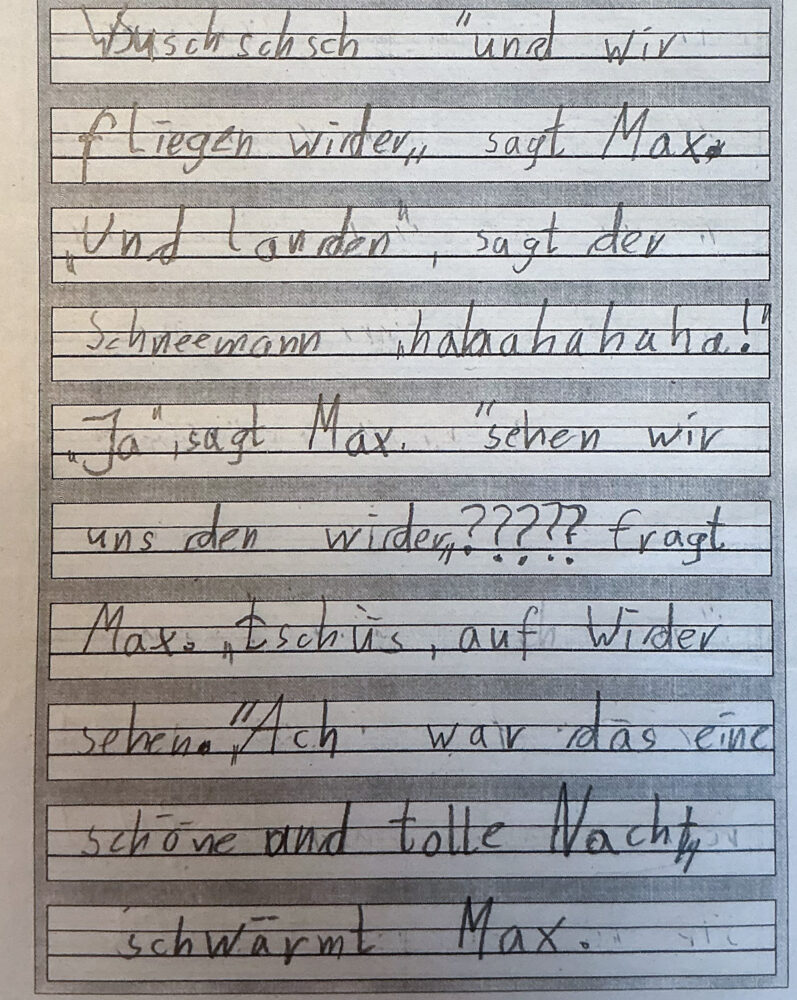 Wuschschsch "und wir
fliegen wirder„ sagt Max.
„Und landen", sagt der
Schneemann „halaahahaha!"
„Ja", sagt Max. "sehen wir
uns den wirder„????? fragt
Max. „tschüs, auf Wirder
sehen." „Ach war das eine
schöne und tolle Nacht„
schwärmt Max.